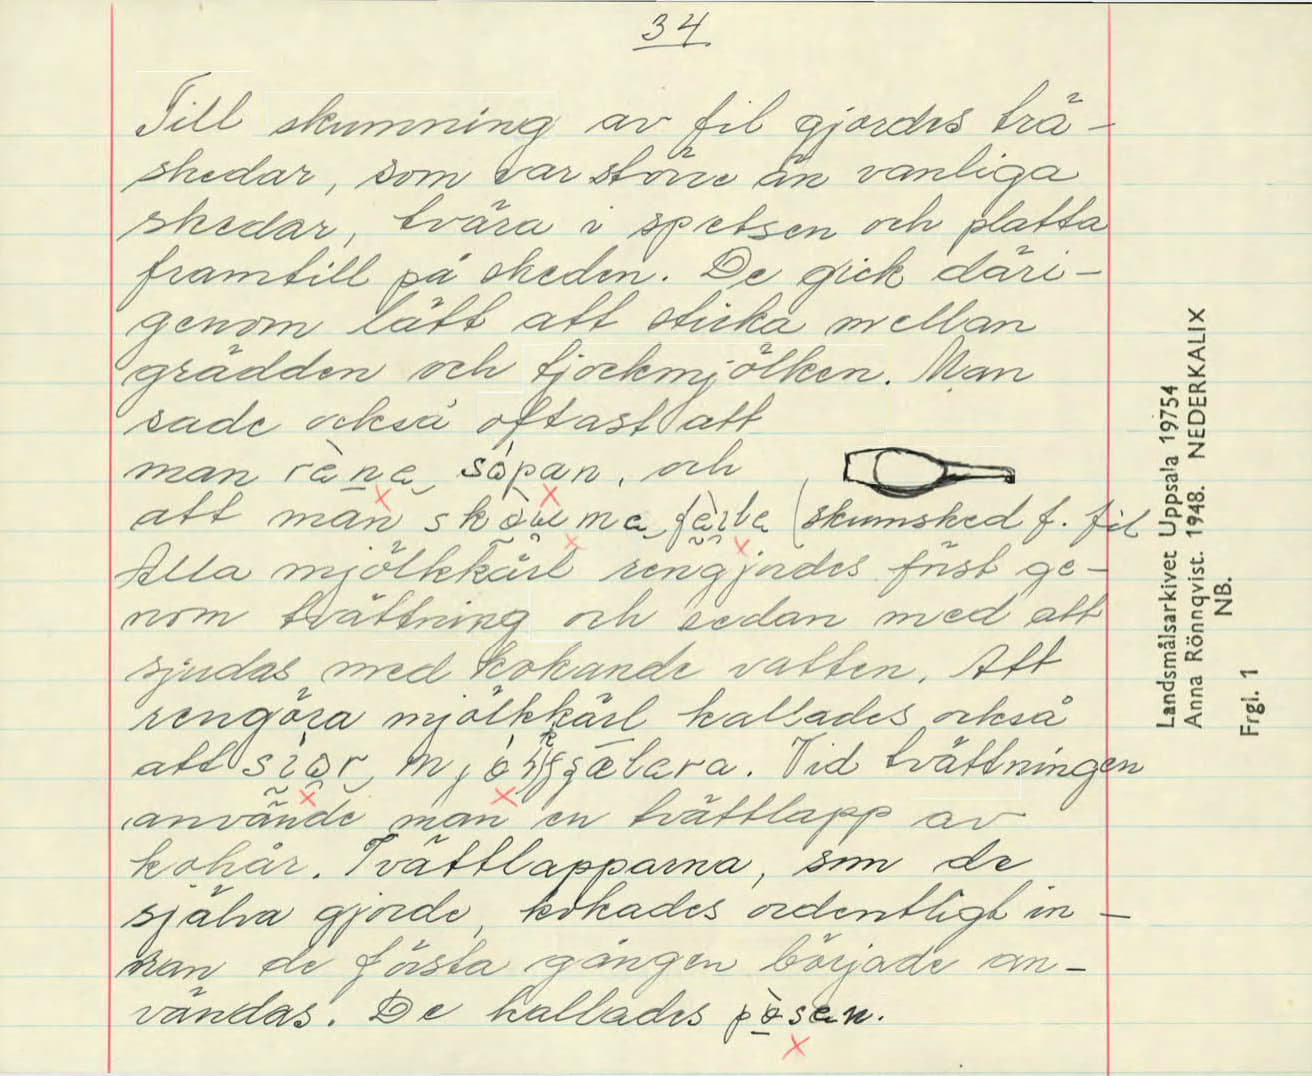 34
Till skumning av fil gjordes trä-
skedar, som var större än vanliga
skedar, tvära i spetsen och platta
framtill på skeden. De gick däri-
genom lätt att sticka mellan
grädden och tjockmjölken. Man
sade också oftast att
man rènа sópan, och
att man (skumsked f. fil
Alla mjölkkärl rengjordes först ge-
nom tvättning och sedan med att
sjudas med kokande vatten. Att
rengöra mjölkkärl kallades också
att Vid tvättningen
använde man en tvättlapp av
kohår. Tvättlapparna, som de
själva gjorde, kokades ordentligt in-
nan de första gången började an-
vändas. De kallades
Landsmålsarkivet Uppsala 19754
Anna Rönnqvist. 1948. NEDERKALIX
NB.
Frgl. 1